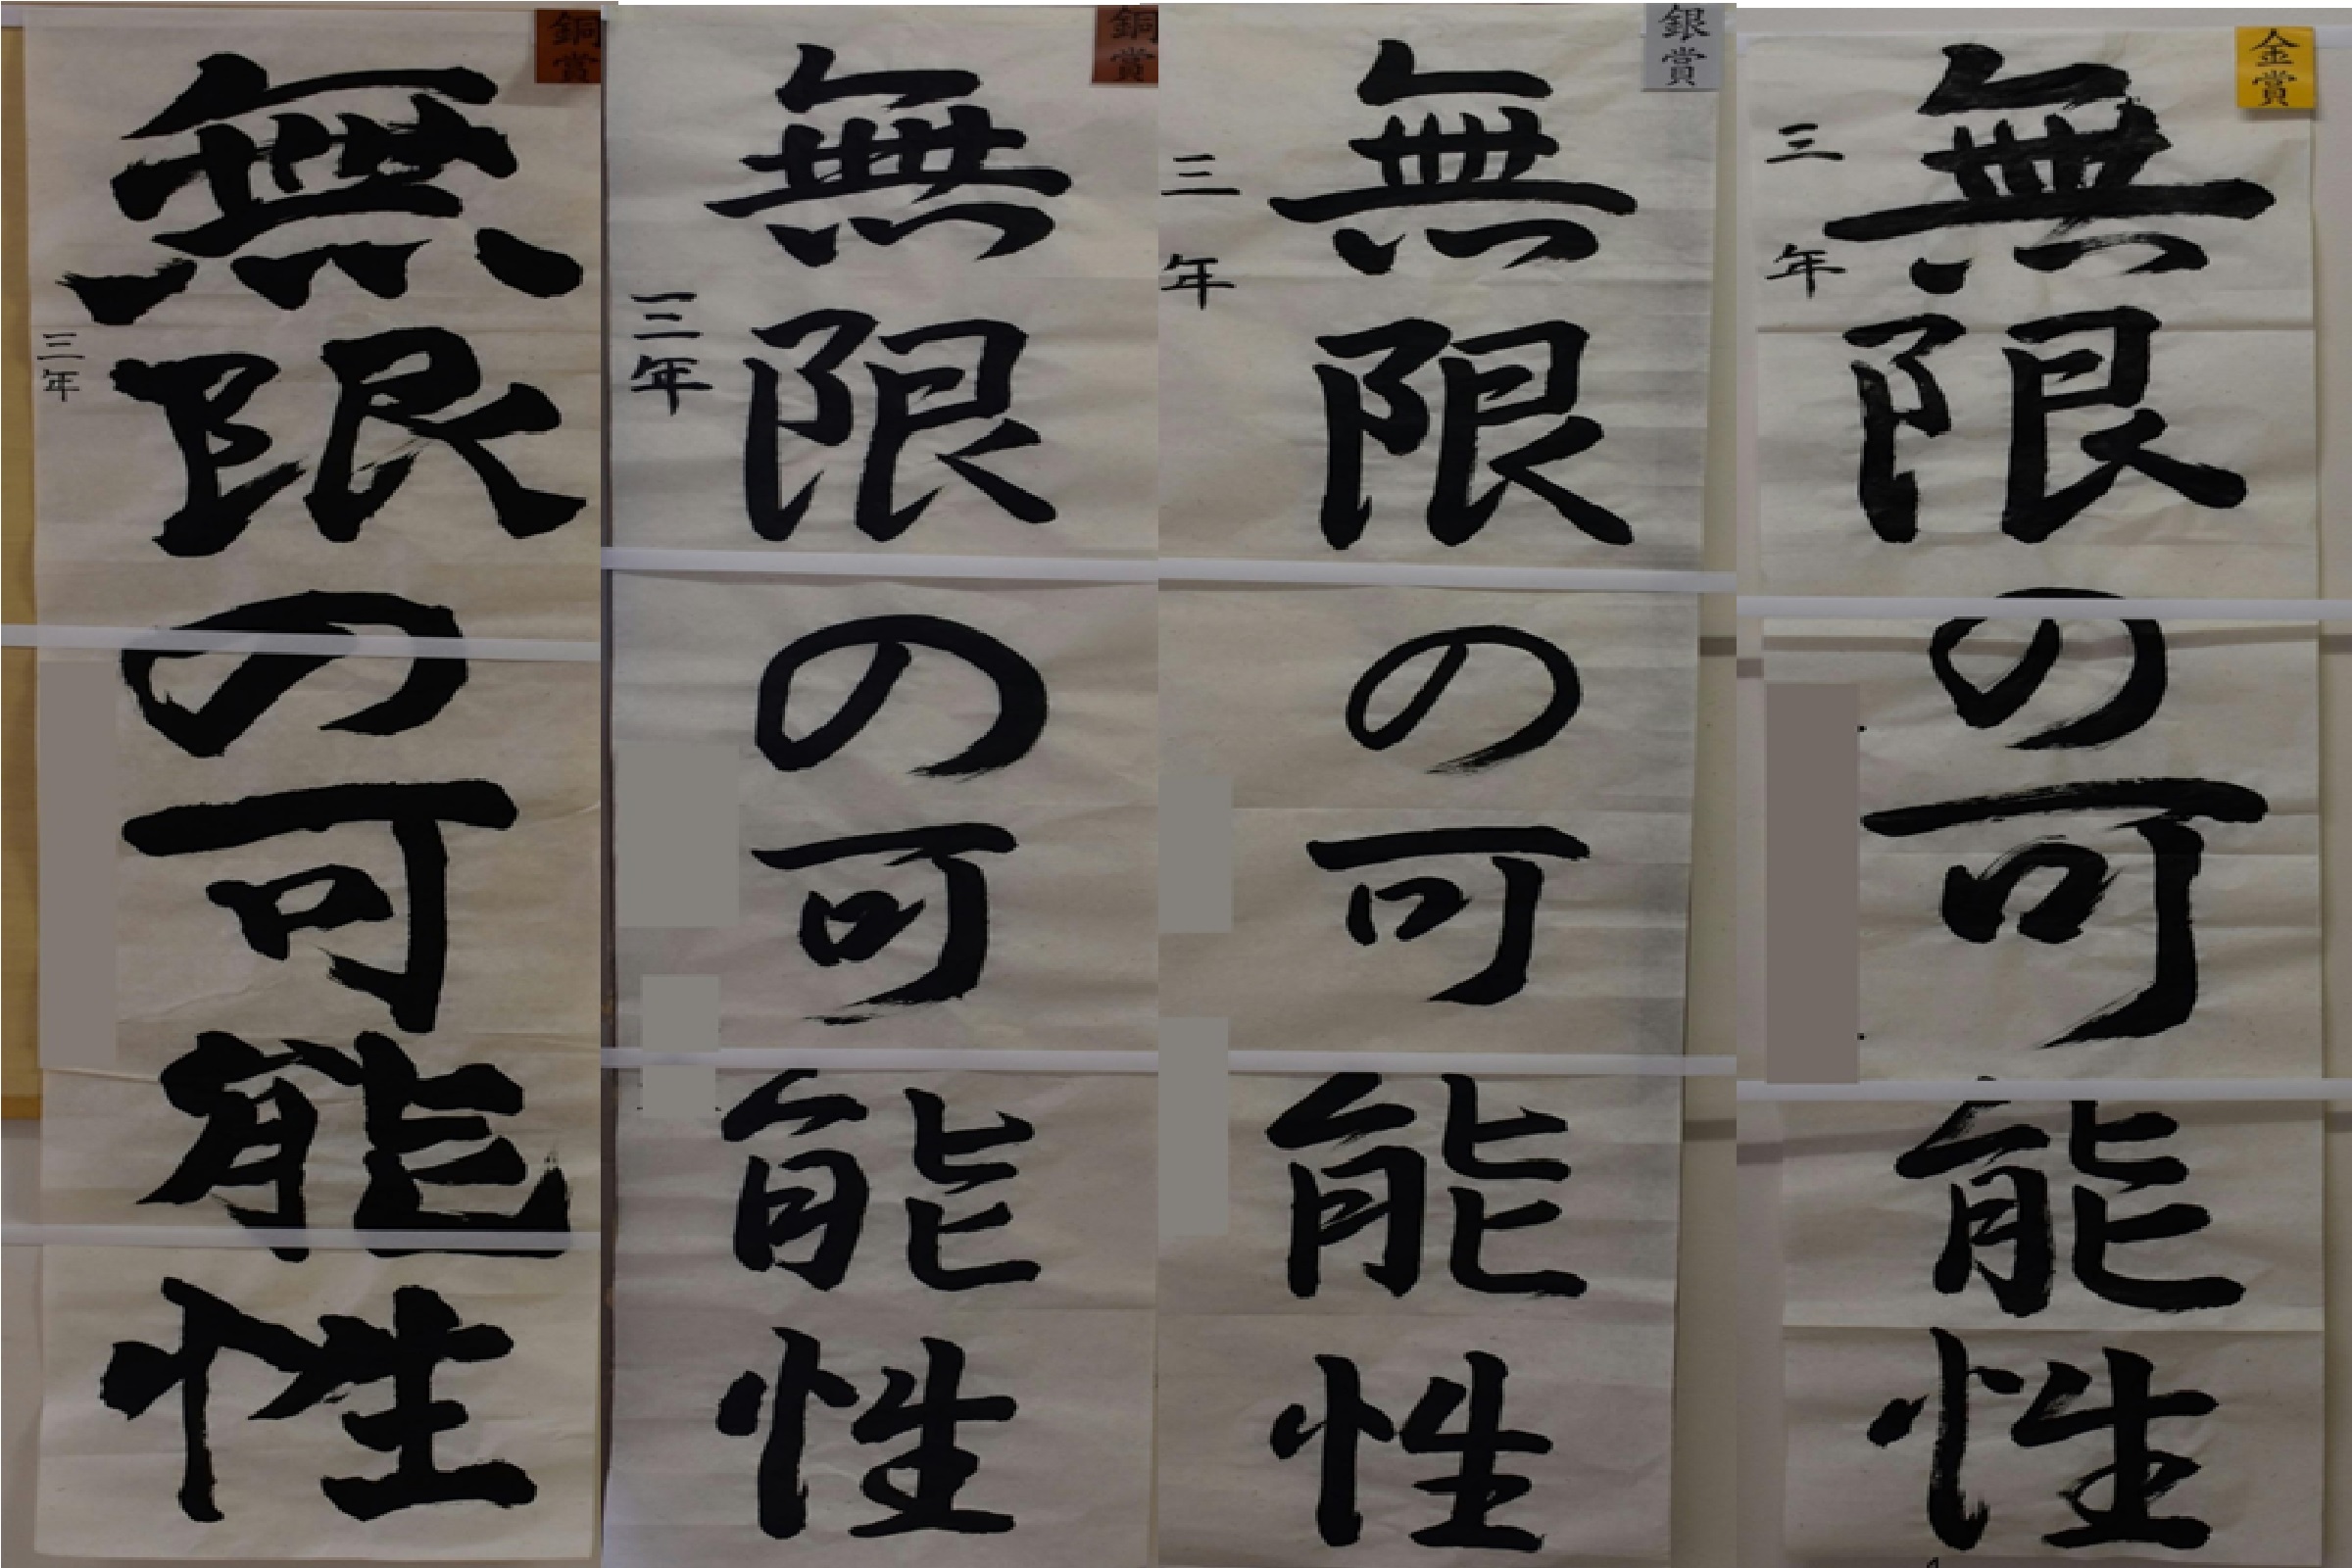 金賞
無限の可能性
三年
銀賞
無限の可能性
三年
銅賞
無限の可能性
三年
銅賞
無限の可能性
三年